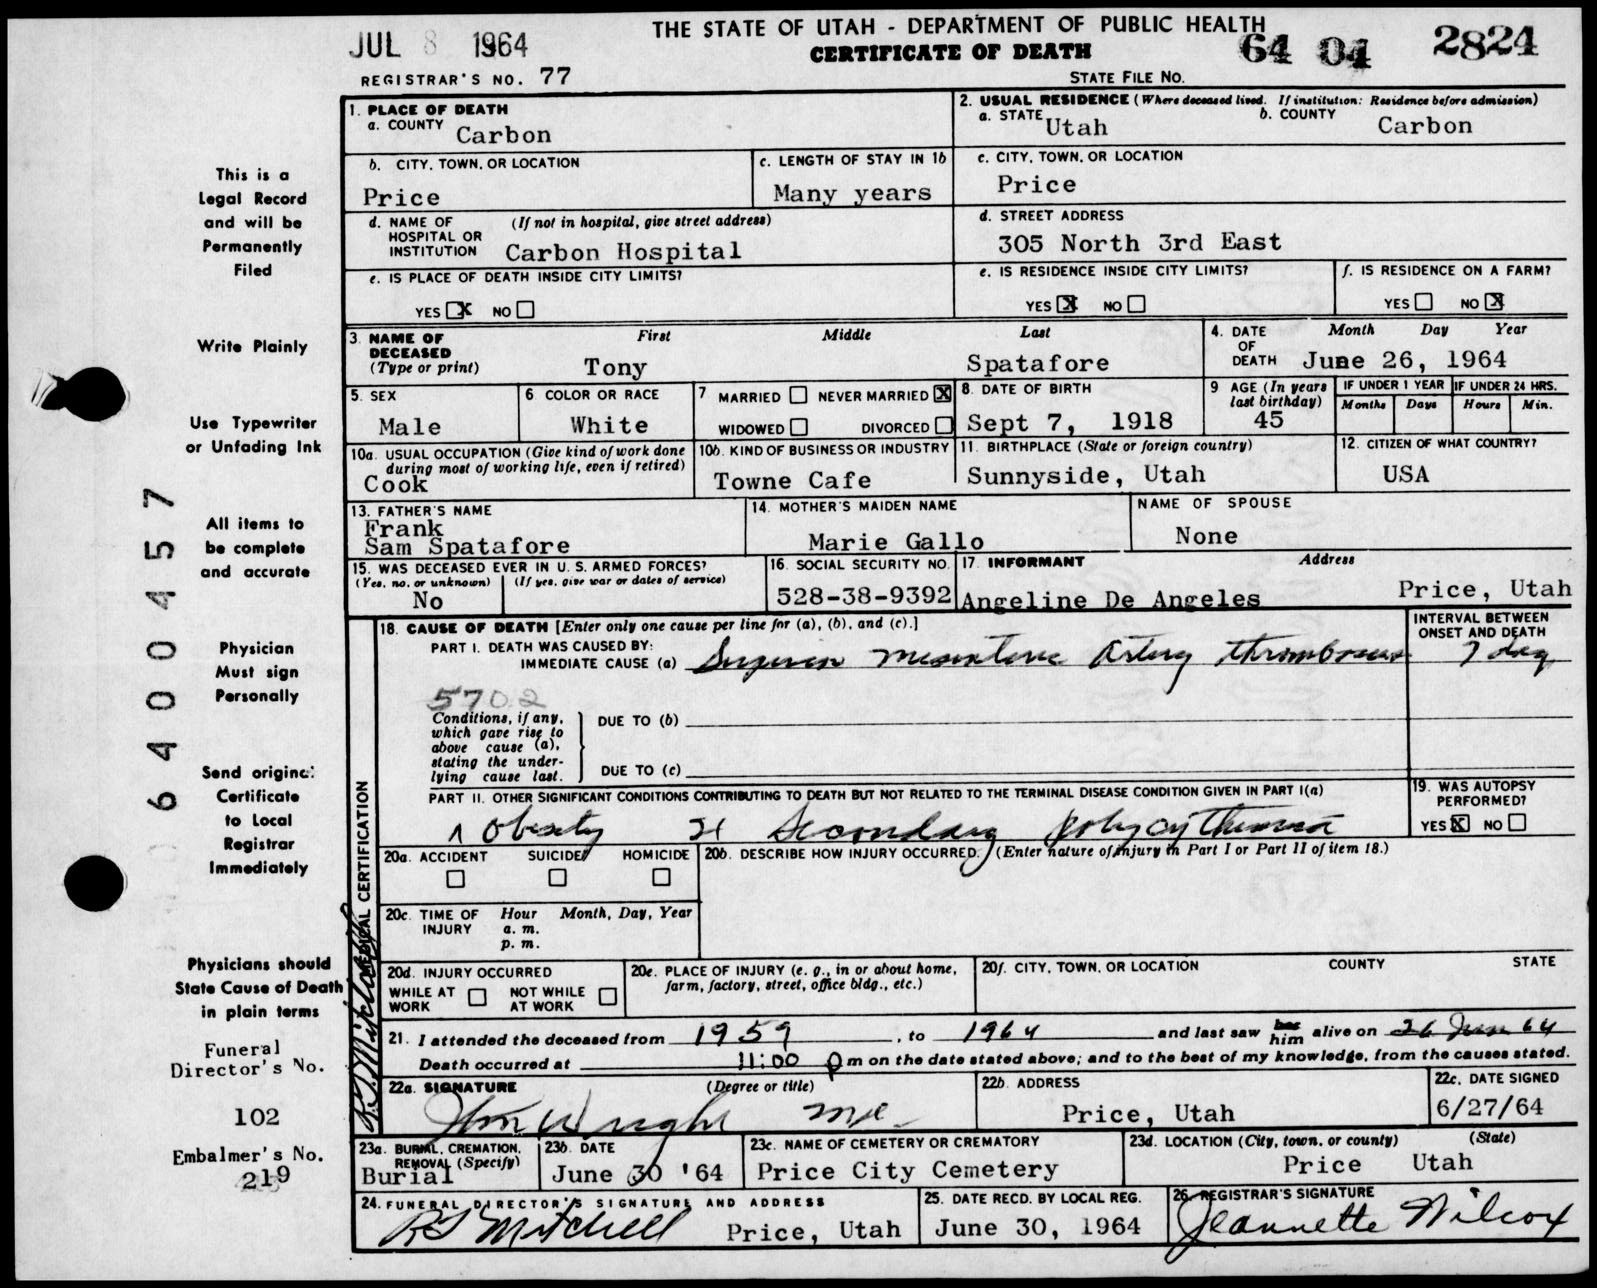 JUL 8 1964
THE STATE OF UTAH - DEPARTMENT OF PUBLIC HEALTH
CERTIFICATE OF DEATH
64 04 2824
REGISTRAR'S NO. 77
STATE FILE NO.
1. PLACE OF DEATH
a. COUNTY Carbon
2. USUAL RESIDENCE (Where deceased lived. If institution: Residence before admission)
a. STATE Utah b. COUNTY Carbon
b. CITY, TOWN, OR LOCATION
Price
c. LENGTH OF STAY IN 1b
Many years
c. CITY, TOWN, OR LOCATION
Price
d. NAME OF HOSPITAL OR INSTITUTION (If not in hospital, give street address)
Carbon Hospital
d. STREET ADDRESS
305 North 3rd East
e. IS PLACE OF DEATH INSIDE CITY LIMITS?
YES X NO
e. IS RESIDENCE INSIDE CITY LIMITS?
YES X NO
f. IS RESIDENCE ON A FARM?
YES NO X
3. NAME OF DECEASED (Type or print)
First Middle Last
Tony Spatafore
4. DATE OF DEATH Month Day Year
June 26, 1964
5. SEX
Male
6. COLOR OR RACE
White
7 MARRIED NEVER MARRIED X
WIDOWED DIVORCED
8. DATE OF BIRTH
Sept 7, 1918
9 AGE (In years last birthday)
45
IF UNDER 1 YEAR IF UNDER 24 HRS.
Months Days Hours Min.
10a. USUAL OCCUPATION (Give kind of work done during most of working life, even if retired)
Cook
10b. KIND OF BUSINESS OR INDUSTRY
Towne Cafe
11. BIRTHPLACE (State or foreign country)
Sunnyside, Utah
12. CITIZEN OF WHAT COUNTRY?
USA
13. FATHER'S NAME
Frank
Sam Spatafore
14. MOTHER'S MAIDEN NAME
Marie Gallo
NAME OF SPOUSE
None
15. WAS DECEASED EVER IN U. S. ARMED FORCES?
(Yes, no, or unknown) (If yes, give war or dates of service)
No
16. SOCIAL SECURITY NO.
528-38-9392
17. INFORMANT Address
Angeline De Angeles Price, Utah
MEDICAL CERTIFICATION
R.G. Mitchell
18. CAUSE OF DEATH [Enter only one cause per line for (a), (b), and (c).]
INTERVAL BETWEEN ONSET AND DEATH
PART I. DEATH WAS CAUSED BY:
IMMEDIATE CAUSE (a) Superior mesenteric artery thrombosis 7 day
5702
Conditions, if any, which gave rise to above cause (a), stating the underlying cause last.
DUE TO (b)
DUE TO (c)
PART II. OTHER SIGNIFICANT CONDITIONS CONTRIBUTING TO DEATH BUT NOT RELATED TO THE TERMINAL DISEASE CONDITION GIVEN IN PART I(a)
1 Obesity 2 Secondary polycythemia
19. WAS AUTOPSY PERFORMED?
YES X NO
20a. ACCIDENT SUICIDE HOMICIDE
20b. DESCRIBE HOW INJURY OCCURRED. (Enter nature of injury in Part I or Part II of item 18.)
20c. TIME OF INJURY Hour Month, Day, Year
a. m.
p. m.
20d. INJURY OCCURRED
WHILE AT WORK NOT WHILE AT WORK
20e. PLACE OF INJURY (e. g., in or about home, farm, factory, street, office bldg., etc.)
20f. CITY, TOWN, OR LOCATION COUNTY STATE
21. I attended the deceased from 1959, to 1964 and last saw her him alive on 26 June 64
Death occurred at 11:00 p m on the date stated above; and to the best of my knowledge, from the causes stated.
22a. SIGNATURE (Degree or title)
Wright MD
22b. ADDRESS
Price, Utah
22c. DATE SIGNED
6/27/64
23a. BURIAL, CREMATION, REMOVAL (Specify)
Burial
23b. DATE
June 30 '64
23c. NAME OF CEMETERY OR CREMATORY
Price City Cemetery
23d. LOCATION (City, town, or county) (State)
Price Utah
24. FUNERAL DIRECTOR'S SIGNATURE AND ADDRESS
R G Mitchell Price, Utah
25. DATE RECD. BY LOCAL REG.
June 30, 1964
26. REGISTRAR'S SIGNATURE
Jeannette Wilcox
This is a
Legal Record
and will be
Permanently
Filed
Write Plainly
Use Typewriter
or Unfading Ink
All items to
be complete
and accurate
Physician
Must sign
Personally
Send original
Certificate
to Local
Registrar
Immediately
Physicians should
State Cause of Death
in plain terms
Funeral
Director's No.
102
Embalmer's No.
219
6400457